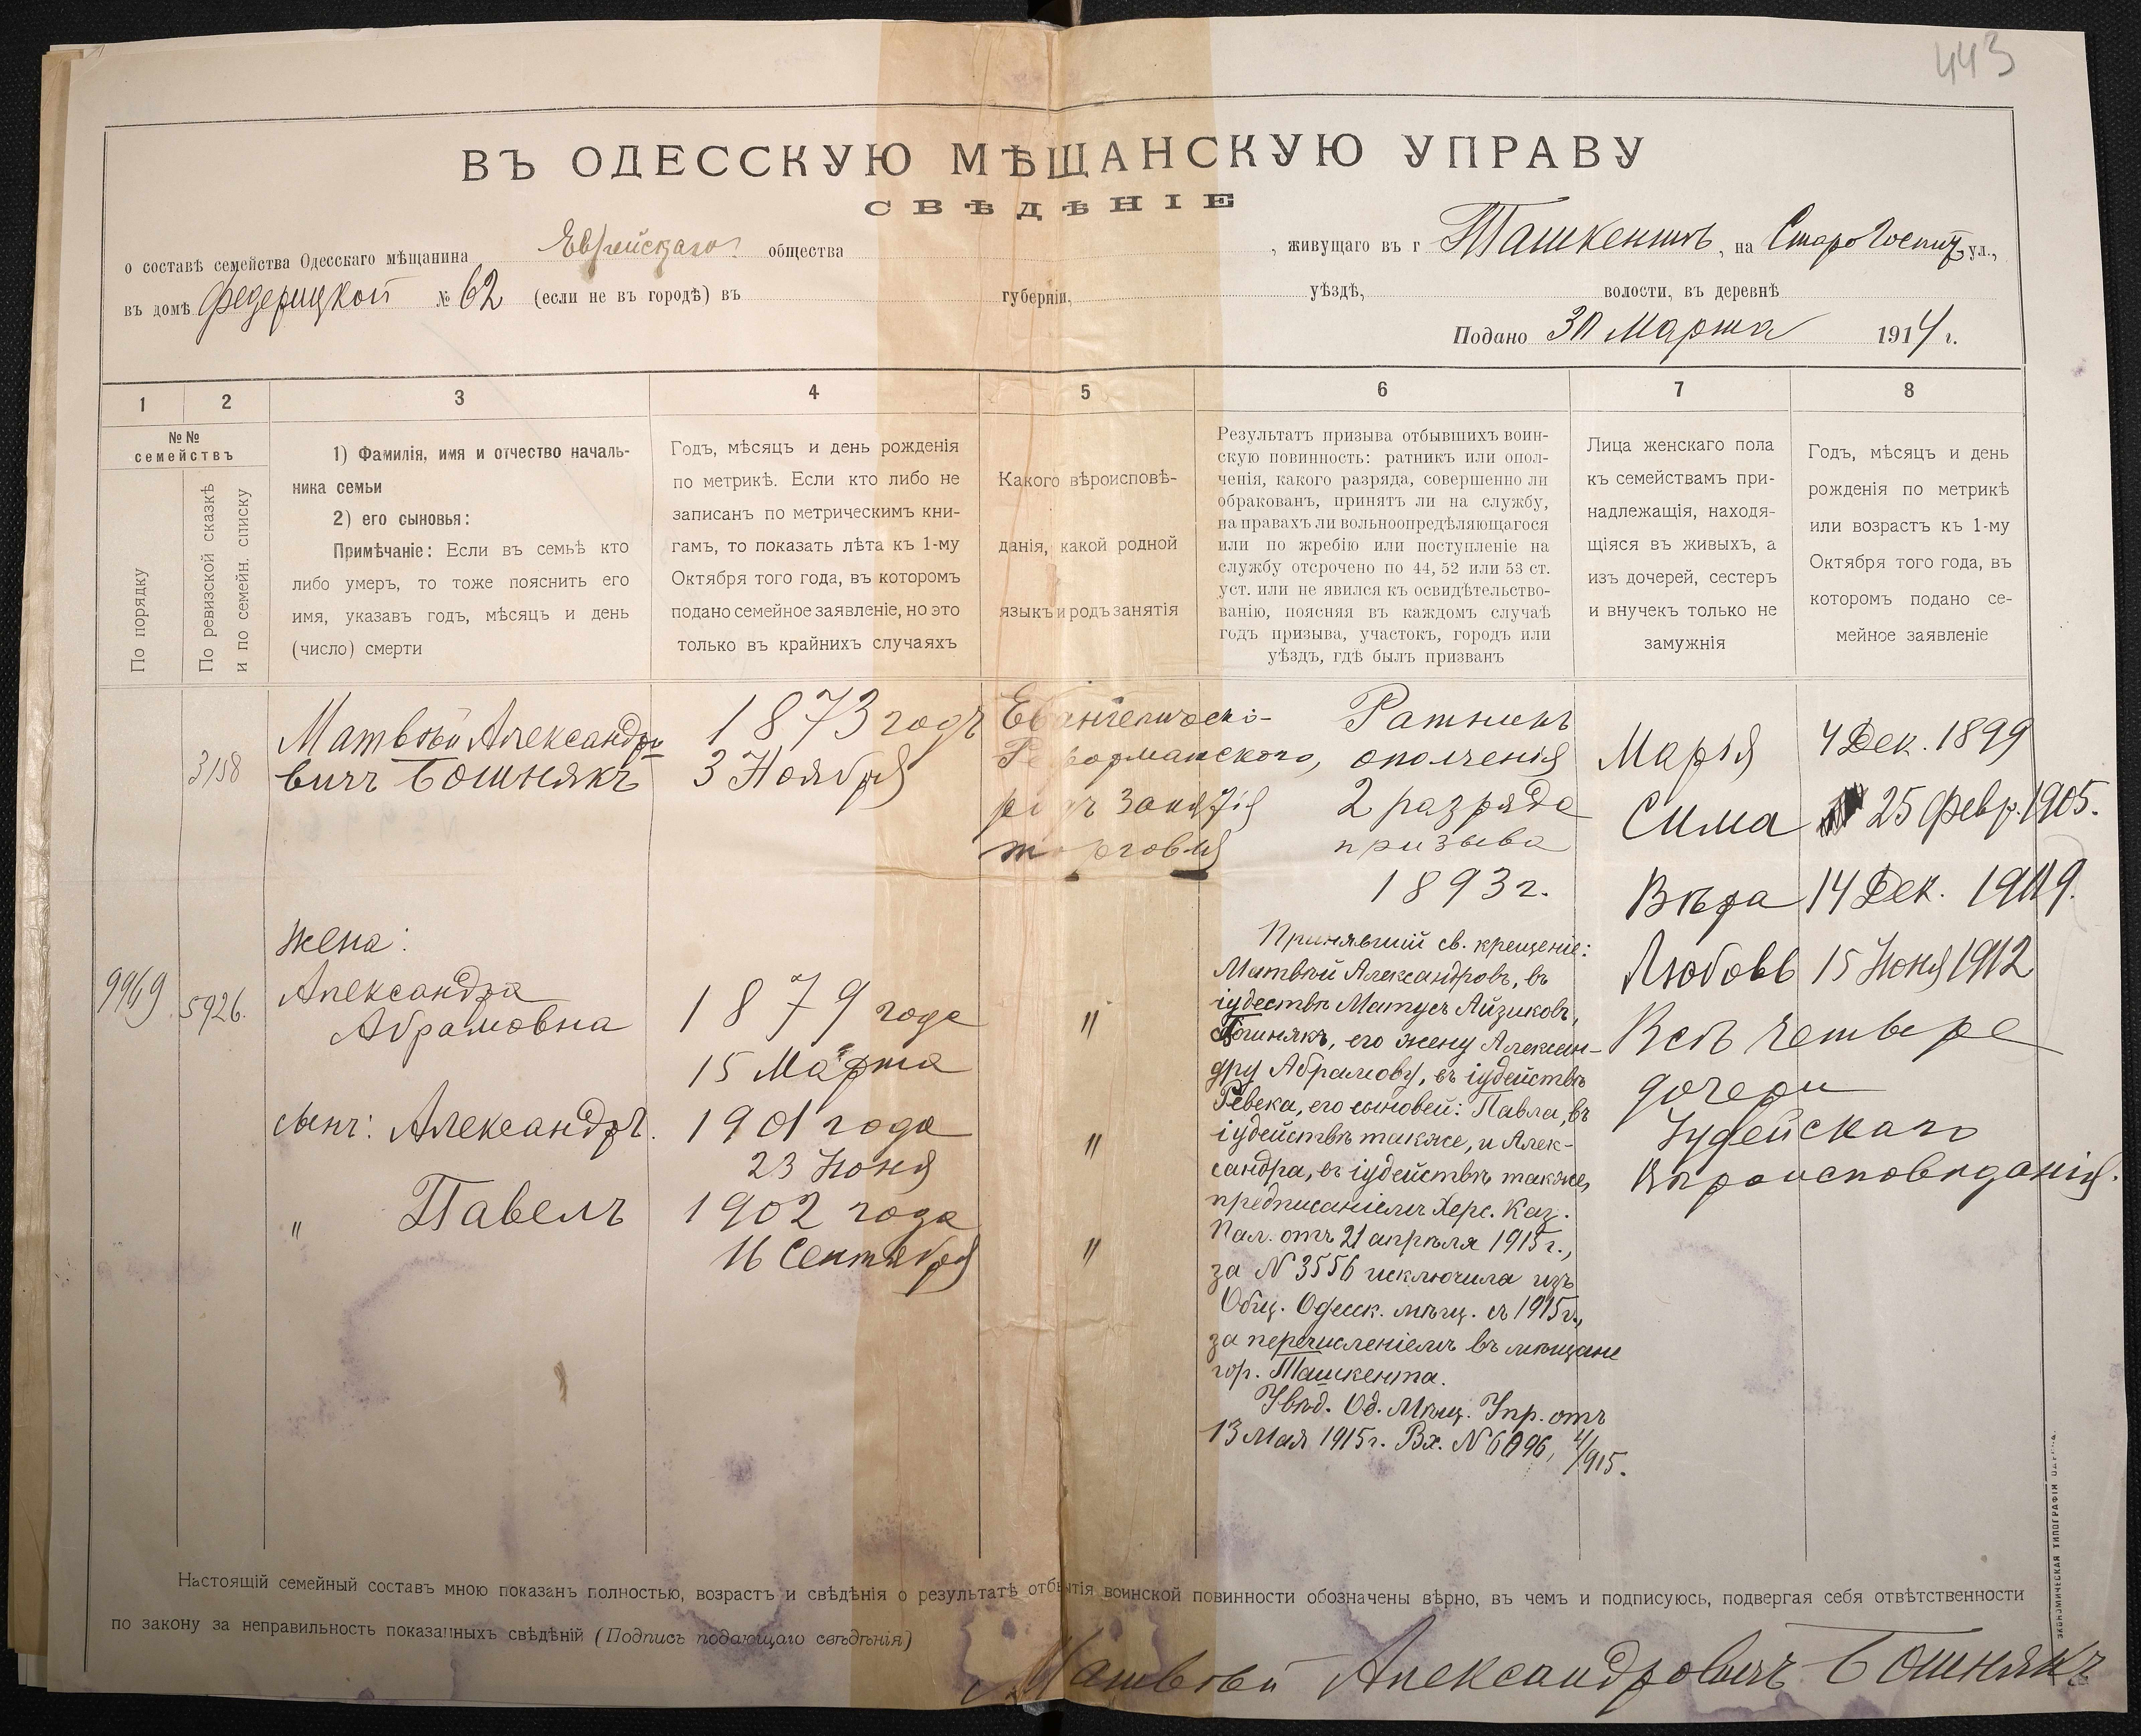 443
ВЪ ОДЕССКУЮ МѢЩАНСКУЮ УПРАВУ
СВѢДѢНІЕ
о составѣ семейства Одесскаго мѣщанина Еврейскаго общества , живущаго въ г Ташкентѣ, на СтароГоспит ул.,
въ домѣ Федерицкой № 62 (если не въ городѣ) въ губерніи, уѣздѣ, волости, въ деревнѣ
Подано 30 Марта 1914 г.
1 2 3 4 5 6 7 8
№№
семействъ
По порядку
По ревизской сказкѣ
и по семейн. списку
1) Фамилія, имя и отчество началь-
ника семьи
2) его сыновья:
Примѣчаніе: Если въ семьѣ кто
либо умеръ, то тоже пояснить его
имя, указавъ годъ, мѣсяцъ и день
(число) смерти
Годъ, мѣсяцъ и день рожденія
по метрикѣ. Если кто либо не
записанъ по метрическимъ кни-
гамъ, то показать лѣта къ 1-му
Октября того года, въ которомъ
подано семейное заявленіе, но это
только въ крайнихъ случаяхъ
Какого вѣроисповѣ-
данія, какой родной
языкъ и родъ занятія
Результатъ призыва отбывшихъ воин-
скую повинность: ратникъ или опол-
ченія, какого разряда, совершенно ли
обракованъ, принятъ ли на службу,
на правахъ ли вольноопредѣляющагося
или по жребію или поступленіе на
службу отсрочено по 44, 52 или 53 ст.
уст. или не явился къ освидѣтельство-
ванію, поясняя въ каждомъ случаѣ
годъ призыва, участокъ, городъ или
уѣздъ, гдѣ былъ призванъ
Лица женскаго пола
къ семействамъ при-
надлежащія, находя-
щіяся въ живыхъ, а
изъ дочерей, сестеръ
и внучекъ только не
замужнія
Годъ, мѣсяцъ и день
рожденія по метрикѣ
или возрастъ къ 1-му
Октября того года, въ
которомъ подано се-
мейное заявленіе
3158
Матвѣй Александро
вичъ Бошнякъ
1873 годъ
3 Ноября
Евангелическо-
Реформатскаго,
родъ занятія
торговля
Ратникъ
ополченія
2 разряда
призыва
1893 г.
Марія 4 Дек. 1899
Сима 25 Февр. 1905.
Вѣра 14 Дек. 1909.
Любовь 15 Іюня 1912
Всѣ четыре
дочери
Іудейскаго
вѣроисповѣданія.
9969 5926.
Жена:
Александра
Абрамовна
1879 года
15 Марта
"
сынъ: Александръ.
1901 года
23 Іюня
"
" Павелъ
1902 года
16 Сентября
"
Принявшій св. крещеніе:
Матвѣй Александровъ, въ
іудествѣ Матусъ Айзиковъ,
Бошнякъ, его жену Алексан-
дру Абрамову, въ іудействѣ
Ревека, его сыновей: Павла, въ
іудействѣ также, и Алек-
сандра, въ іудействѣ также,
предписаніемъ Херс. Каз.
Пал. отъ 21 апрѣля 1915 г.,
за № 3556 исключила изъ
Общ. Одесск. мѣщ. съ 1915 г.,
за перечисленіемъ въ мѣщане
гор. Ташкента.
Увѣд. Од. Мѣщ. Упр. отъ
13 Мая 1915 г. Вх. № 6096, /915.
Настоящій семейный составъ мною показанъ полностью, возрастъ и свѣдѣнія о результатѣ отбытія воинской повинности обозначены вѣрно, въ чемъ и подписуюсь, подвергая себя отвѣтственности
по закону за неправильность показанныхъ свѣдѣній (Подпись подающаго свѣдѣнія)
Матвѣй Александровичъ Бошнякъ
ЭКОНОМИЧЕСКАЯ ТИПОГРАФІЯ